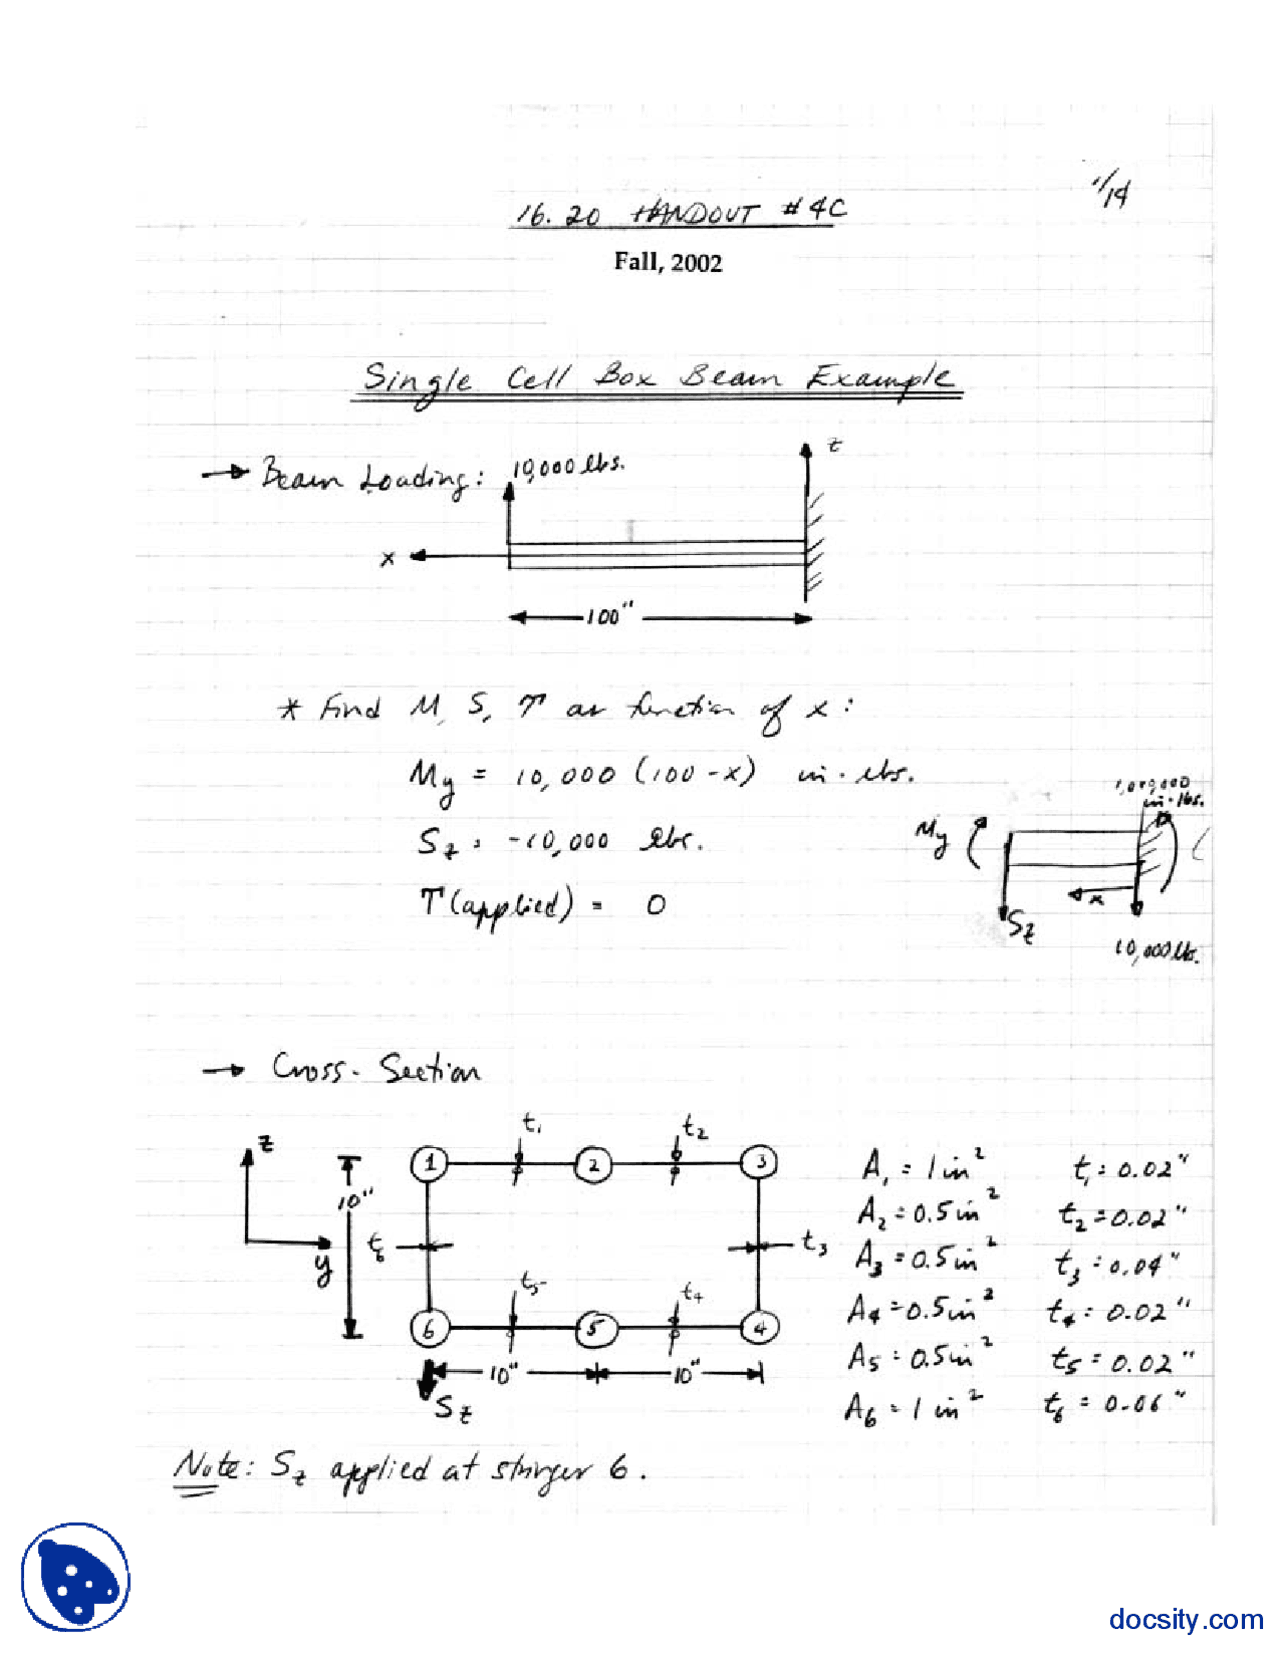 1/14
16.20 HANDOUT #4C
Fall, 2002
Single Cell Box Beam Example
→ Beam Loading: 10,000 lbs.
z
x
100"
* Find M, S, T as function of x:
My = 10,000 (100-x) in·lbs.
Sz = -10,000 lbs.
T (applied) = 0
1,000,000
in·lbs.
My
x
Sz
10,000 lbs.
→ Cross-Section
z
y
10"
t1
t2
1 2 3
t6
t3
t5
t4
6 5 4
10" 10"
Sz
A1 = 1 in² t1 = 0.02"
A2 = 0.5 in² t2 = 0.02"
A3 = 0.5 in² t3 = 0.04"
A4 = 0.5 in² t4 = 0.02"
A5 = 0.5 in² t5 = 0.02"
A6 = 1 in² t6 = 0.06"
Note: Sz applied at stringer 6.
docsity.com